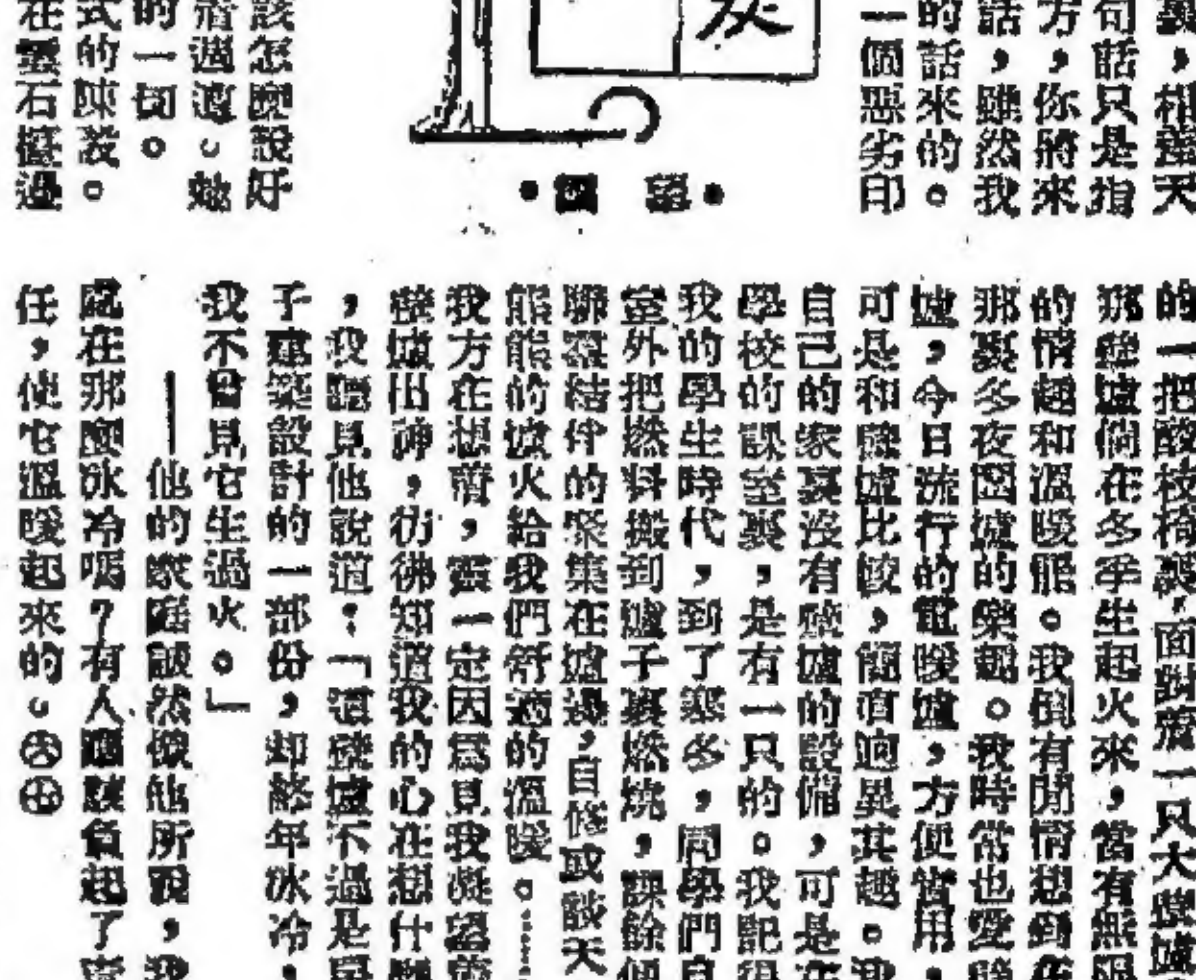 裏，相逢天
句話只是指
方，你將來
話，雖然我
的話來的。
一個惡劣印
灰
該怎麼說好
着週遭。她
的一切。
式的陳設。
在雲石檯邊
的一把酸枝椅裏，面對着一只大壁爐
那壁爐倘在冬季生起火來，當有無限
的情趣和溫暖罷。我倒有閒情想到在
那裏冬夜圍爐的樂趣。我時常也愛
爐，今日流行的電暖爐，方便管用，
可是和壁爐比較，頗有逈異其趣。我
自己的家裏沒有壁爐的設備，可是在
學校的課室裏，是有一只的。我記得
我的學生時代，到了寒冬，同學們自
室外把燃料搬到爐子裏燃燒，課餘便
聯羣結伴的聚集在爐邊，自修或談天
熊熊的爐火給我們舒適的溫暖。……
我方在想着，靈一定因爲見我凝望着
壁爐出神，彷彿知道我的心在想什麼
，我聽見他說道：「這壁爐不過是房
子建築設計的一部份，却終年冰冷，
我不曾見它生過火。」
——他的家庭誠然像他所說，我
處在那麼冰冷嗎？有人應該負起了
任，使它溫暖起來的。㊅㊉